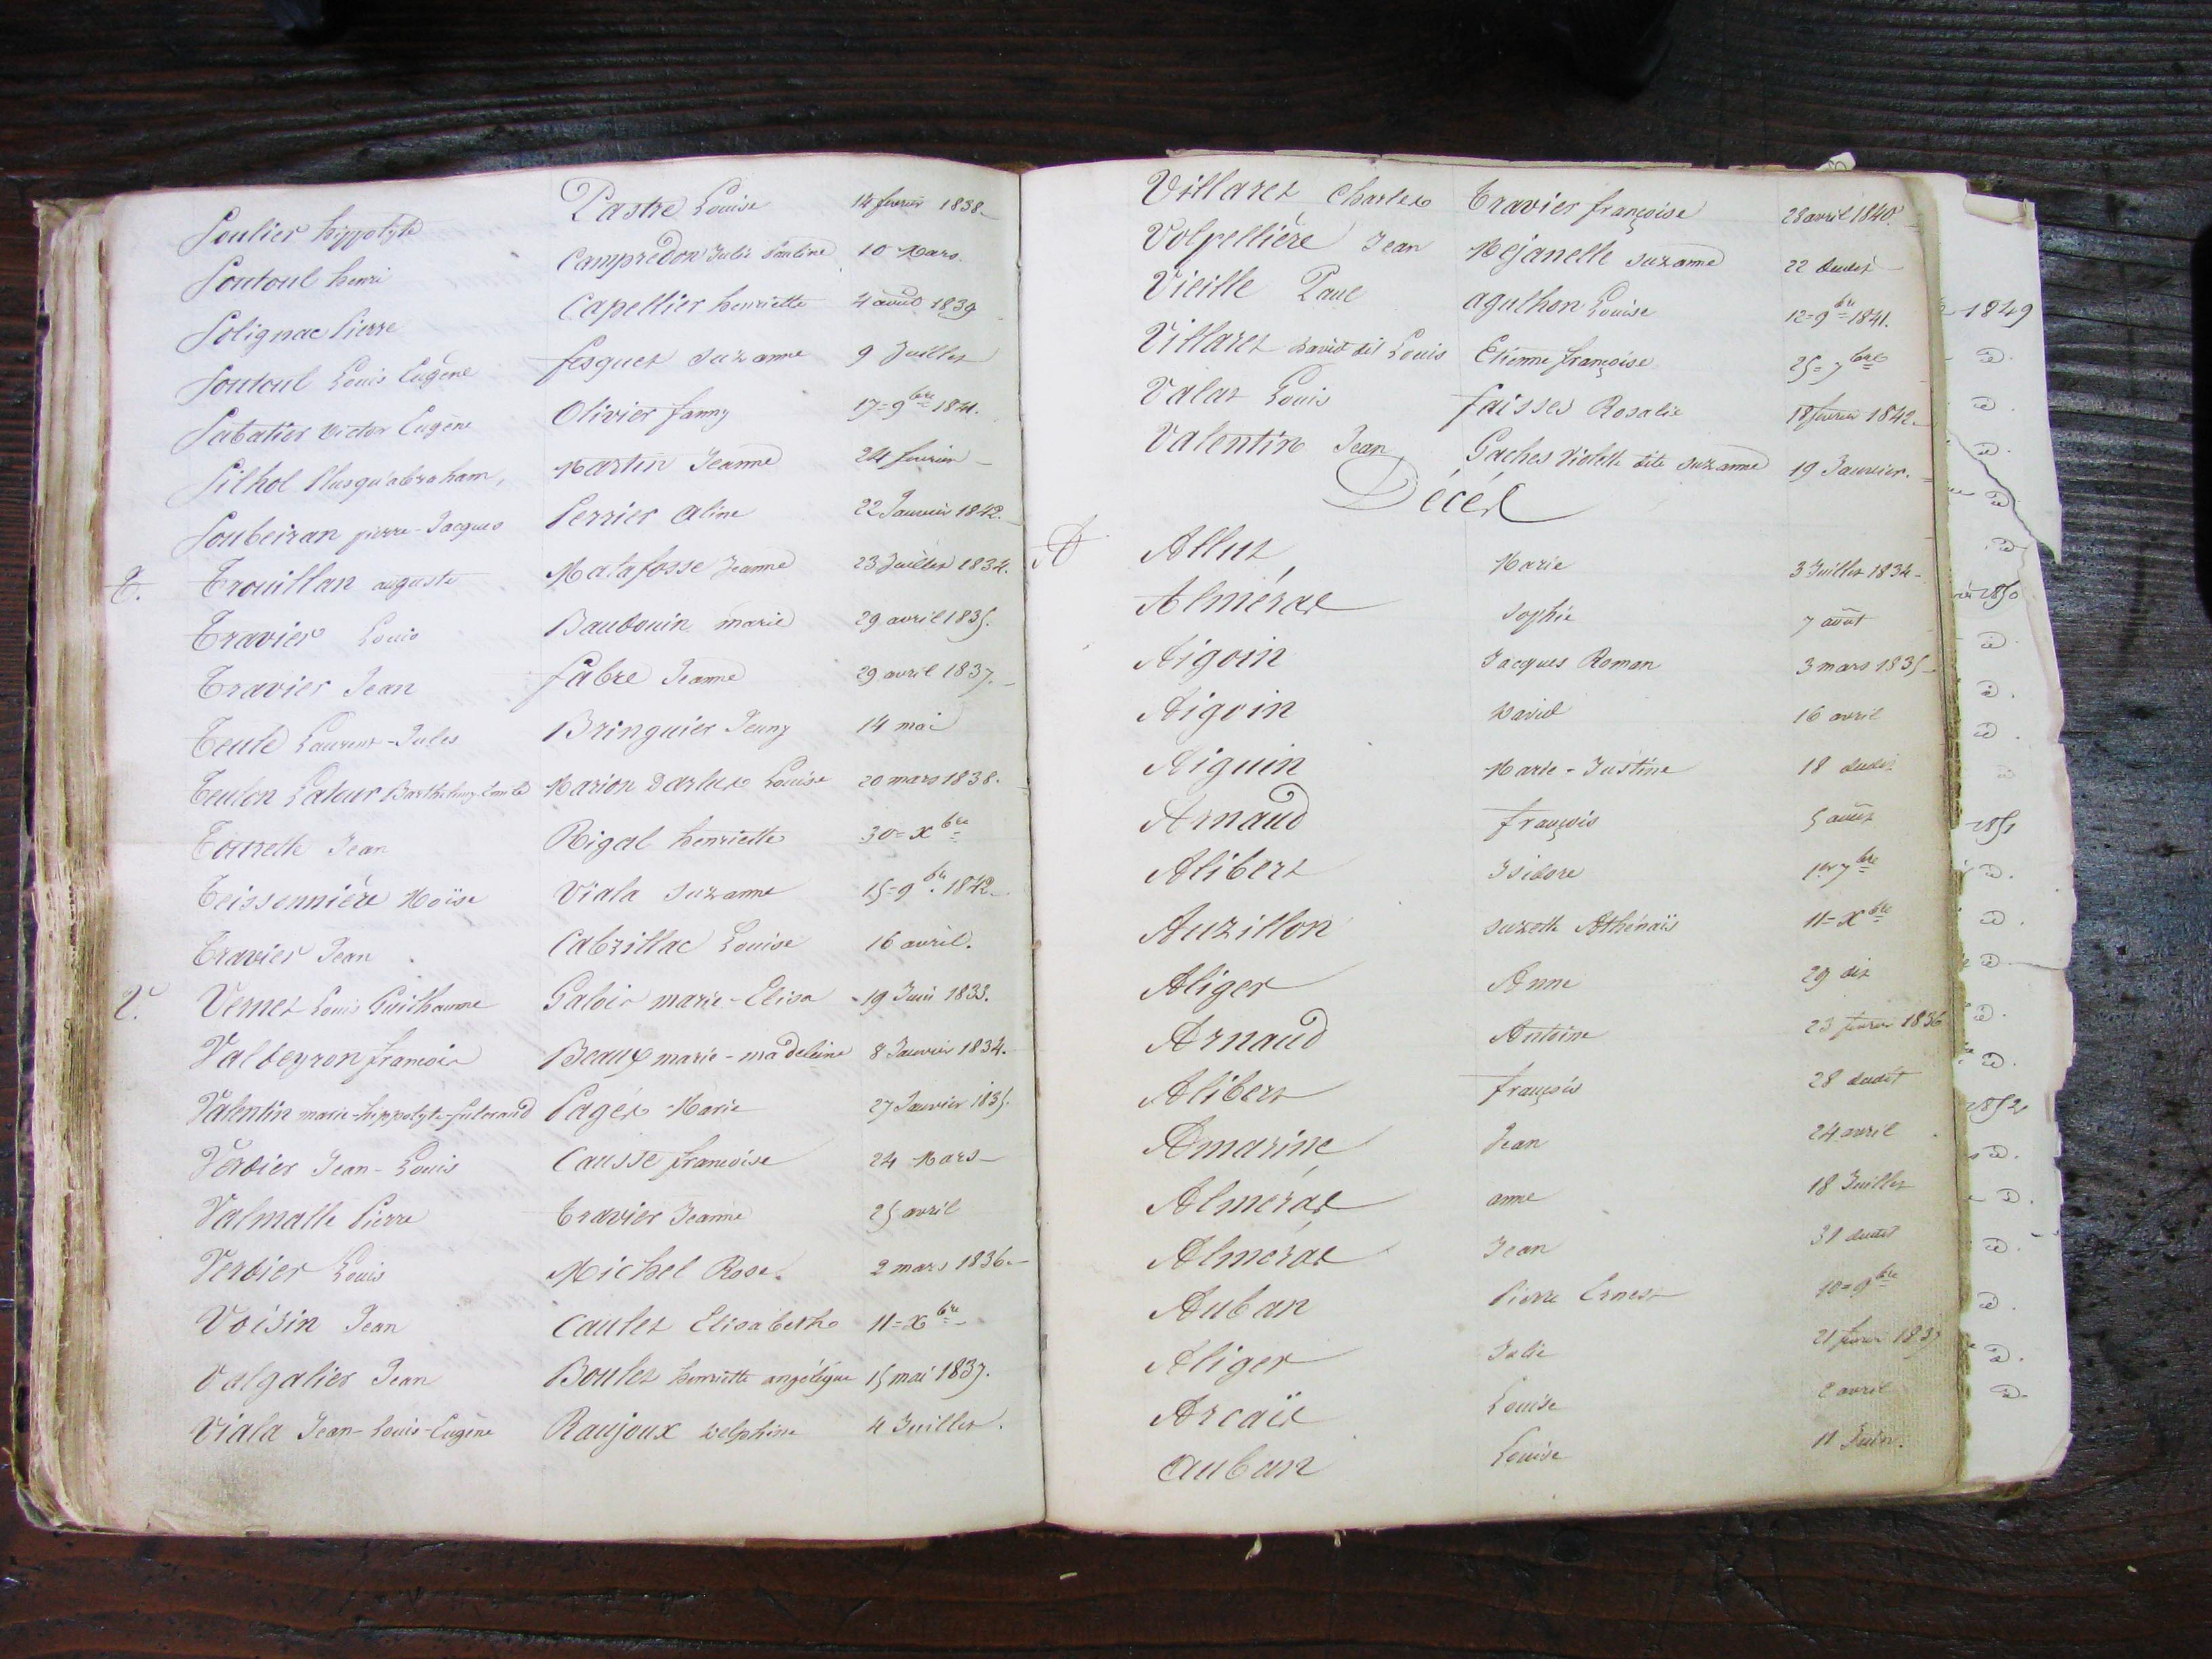 Soulier hippolyte Pastre Louise 14 février 1838
Soutoul henri Campredon Julie Pauline 10 Mars
Solignac Pierre Capellier henriette 4 août 1839
Soutoul Louis Eugène fesquet Suzanne 9 Juillet
Sabatier victor Eugène Olivier fanny 17=9bre 1841.
Silhol Plusqu'abraham, Martin Jeanne 24 février
Soubeiran pierre-Jacques Perrier Aline 22 Janvier 1842.
T. Trouillan auguste Matafosse Jeanne 23 Juillet 1834.
Travier Louis Baudouin marie 29 avril 1835.
Travier Jean fabre Jeanne 29 avril 1837.
Teule Laurent-Jules Bringuier Jenny 14 mai
Teulon Latour Barthelemy Emile Marion Darlux Louise 20 mars 1838.
Tourette Jean Rigal henriette 30=Xbre
Teissonnière Moïse Viala Suzanne 15=9bre 1842
Travier Jean Cabrillac Louise 16 avril.
V. Vernet Louis Guilhaume Galois marie-Elisa 19 Juin 1833.
Valdeyron francois Beaux marie-madeleine 8 Janvier 1834.
Valentin marie-hippolyte-fulcrand Pagés Marie 27 Janvier 1835.
Verdier Jean-Louis Causse francoise 24 Mars
Valmalle Pierre Travier Jeanne 25 avril
Verdier Louis Michel Rose. 2 mars 1836.
Voisin Jean Caulet Elisabeth 11=Xbre
Valgalier Jean Boulet henriette angélique 15 mai 1837.
Viala Jean-Louis-Eugène Raujoux Delphine 4 Juillet.
Villaret Charles Travier françoise 28 avril 1840.
Volpellière Jean Mejanelle Suzanne 22 dudit
Vieille Paul agulhon Louise 12=9bre 1841.
Villaret david dit Louis Etienne françoise 25=7bre
Valat Louis faisses Rosalie 18 février 1842.
Valentin Jean Gaches Violette dite Suzanne 19 Janvier.
Décés
A Allut Marie 3 Juillet 1834
Alméras Sophie 7 août
Aigoin Jacques Roman 3 mars 1835
Aigoin David 16 avril
Aiguin Marie-Justine 18 dudit
Arnaud françois 5 août
Alibert Isidore 1er 7bre
Auzillon Suzette Athénaïs 11=Xbre
Aliger Anne 29 dit
Arnaud Antoine 23 février 1836
Alibert françois 28 dudit
Amarine Jean 24 avril
Alméras anne 18 Juillet
Alméras Jean 31 dudit
Auban Pierre Ernest 10=9bre
Aliger Julie 21 février 1837
Arcaïs Louise 2 avril
Auban Louise 11 Juin.
1849
1850
1851
1852